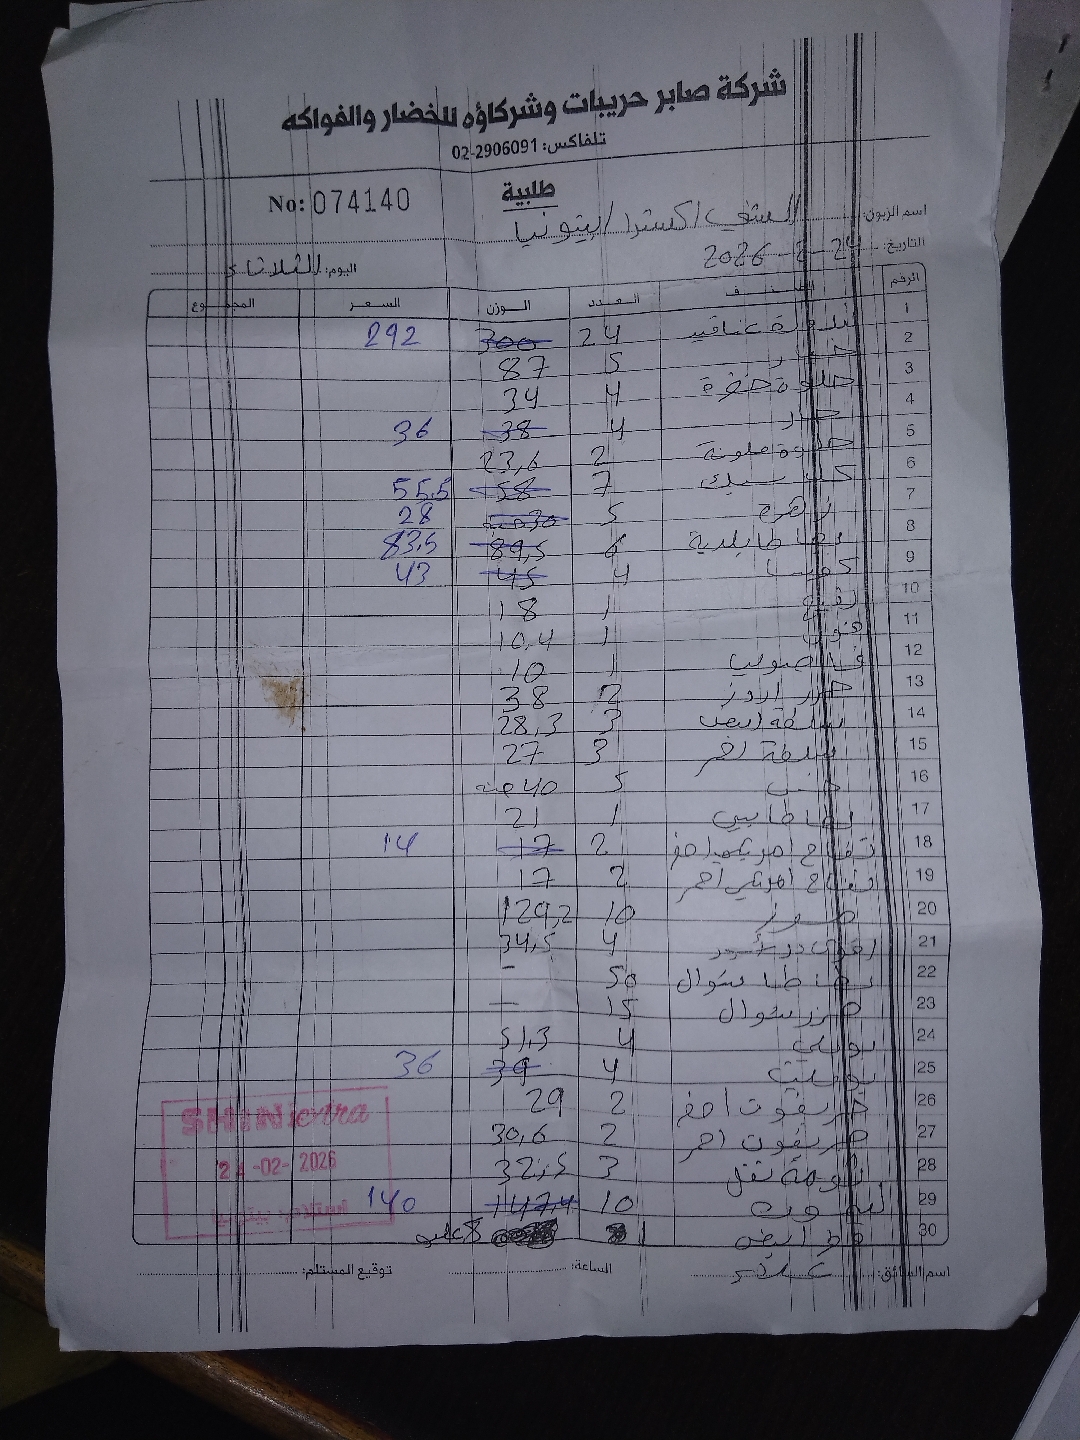 شركة صابر حريبات وشركاؤه للخضار والفواكه
تلفاكس: 02-2906091
طلبية
No: 074140
اسم الزبون: الشني اكسترا / بيتونيا
التاريخ: 24-2-2026
اليوم: الثلاثاء
الرقم الصنف العدد الوزن السعر المجموع
1 بندورة عناقيد 24 300 292
2 خيار 5 87
3 حلوة خضرة 4 34
4 حار 4 38 36
5 حلوة ملونة 2 23,6
6 7 58 55.5
7 زهرة 5 30 28
8 بطاطا بلدية 6 89,5 83.5
9 كوسا 4 45 43
10 1 18
11 1 10,4
12 1 10
13 جزر 2 38
14 بصلة ابيض 3 28,3
15 3 27
16 خس 5 40 حبة
17 بطاطا 1 21
18 تفاح امريكي اخضر 2 17 14
19 تفاح امريكي احمر 2 17
20 موز 10 129,2
21 4 34,5
22 بطاطا شوال 50 -
23 جزر شوال 15 -
24 بوملي 4 51,3
25 4 39 36
26 جريفوت اصفر 2 29
27 جريفوت احمر 2 30,6
28 3 32,5
29 ليمون 10 147,4 140
30 ابيض 8
SHINI extra
24-02-2026
استلام بيتونيا
اسم السائق:
الساعة:
توقيع المستلم: